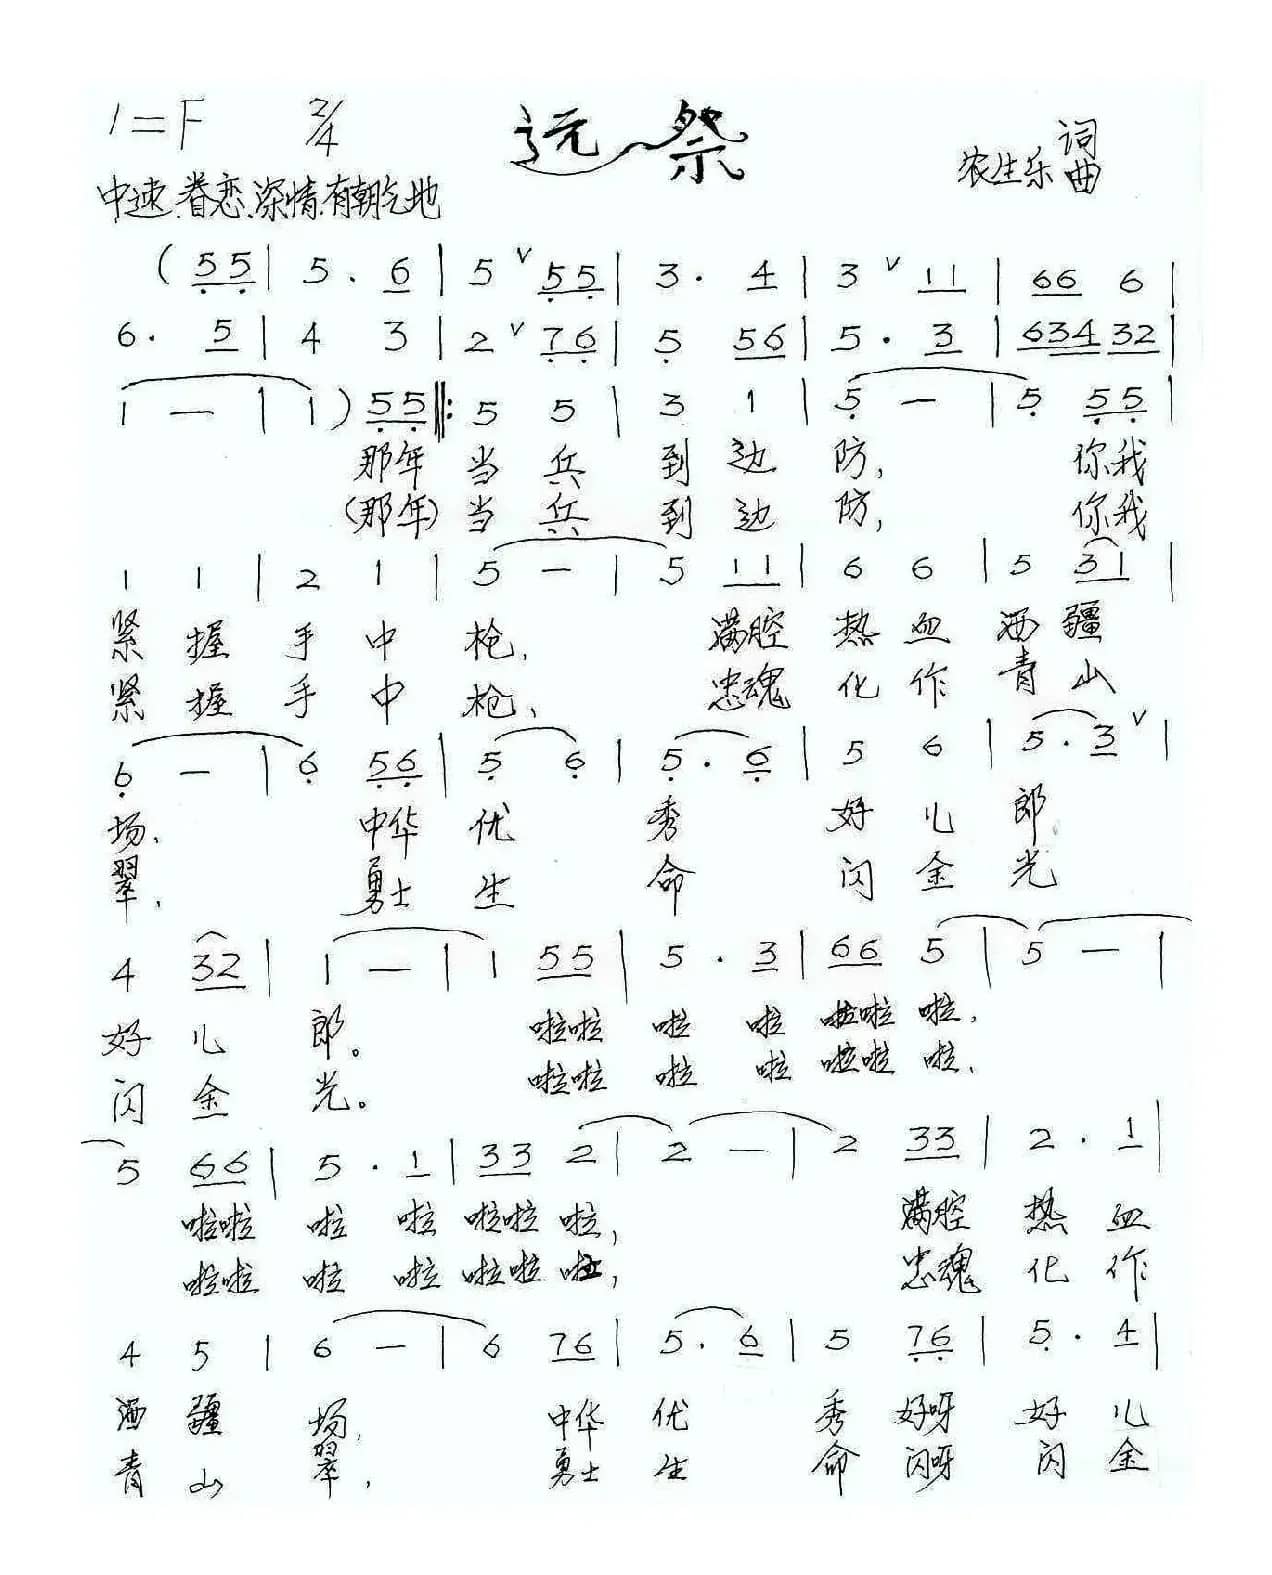 1=F 2/4 远祭 农生乐 词曲
中速、眷恋、深情、有朝气地
( 5 5 | 5 . 6 | 5 ∨ 5 5 | 3 . 4 | 3 ∨ 1 1 | 6 6 6 |
6 . 5 | 4 3 | 2 ∨ 7 6 | 5 5 6 | 5 . 3 | 6 3 4 3 2 |
1 — | 1 ) 5 5 ‖: 5 5 | 3 1 | 5 — | 5 5 5 |
那年 当 兵 到 边 防, 你我
(那年) 当 兵 到 边 防, 你我
1 1 | 2 1 | 5 — | 5 1 1 | 6 6 | 5 3 1 |
紧 握 手 中 枪, 满腔 热 血 洒 疆
紧 握 手 中 枪, 忠魂 化 作 青 山
6 — | 6 5 6 | 5 6 | 5 . 6 | 5 6 | 5 . 3 ∨ |
场, 中华 优 秀 好 儿 郎,
翠, 勇士 生 命 闪 金 光
4 3 2 | 1 — | 1 5 5 | 5 . 3 | 6 6 5 | 5 — |
好 儿 郎。 啦啦 啦 啦 啦啦 啦,
闪 金 光。 啦啦 啦 啦 啦啦 啦,
5 6 6 | 5 . 1 | 3 3 2 | 2 — | 2 3 3 | 2 . 1 |
啦啦 啦 啦 啦啦 啦, 满腔 热 血
啦啦 啦 啦 啦啦 啦, 忠魂 化 作
4 5 | 6 — | 6 7 6 | 5 . 6 | 5 7 6 | 5 . 4 |
洒 疆 场, 中华 优 秀 好呀 好 儿
青 山 翠, 勇士 生 命 闪呀 闪 金